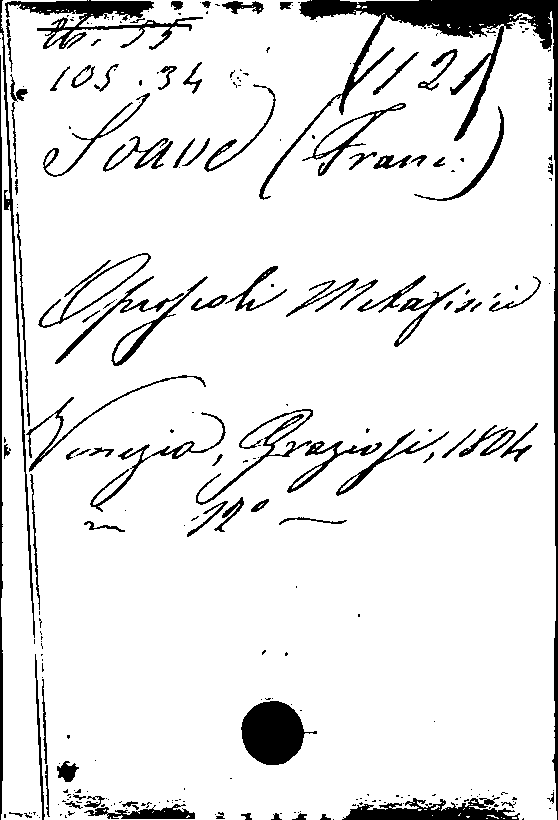 16. 55
105.34 (V121)
Soave (Franc.)
Opuscoli Metafisici
Venezia, Graziosi, 1804
in 12° —